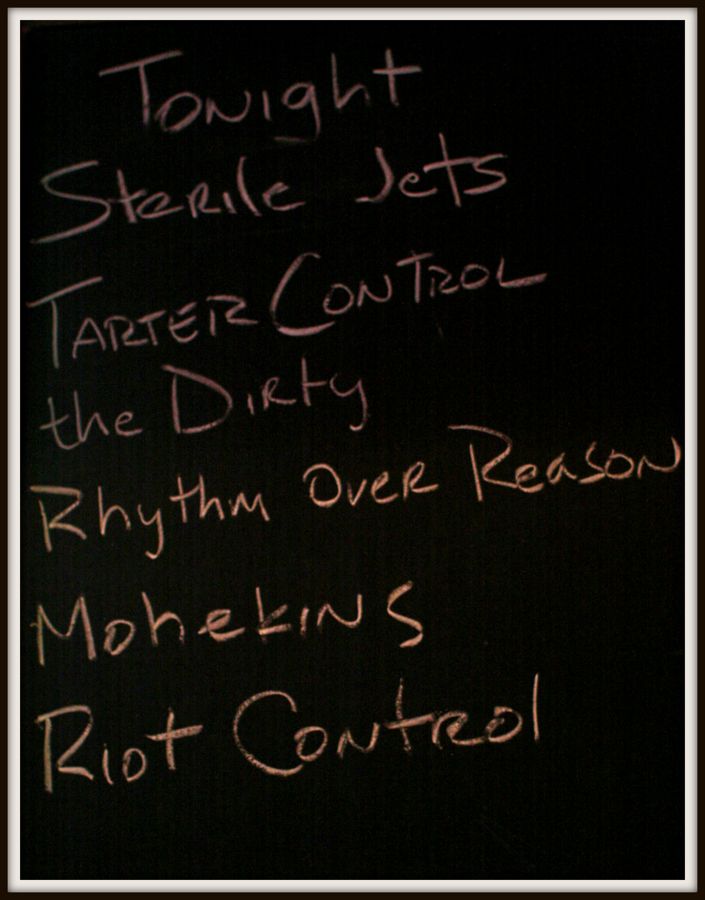 Tonight
Sterile Jets
Tarter Control
the Dirty
Rhythm Over Reason
Mohekins
Riot Control